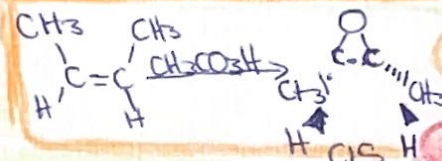 CH3 CH3 O
C=C CH3CO3H C C
H H CH3 CH3
H cis H